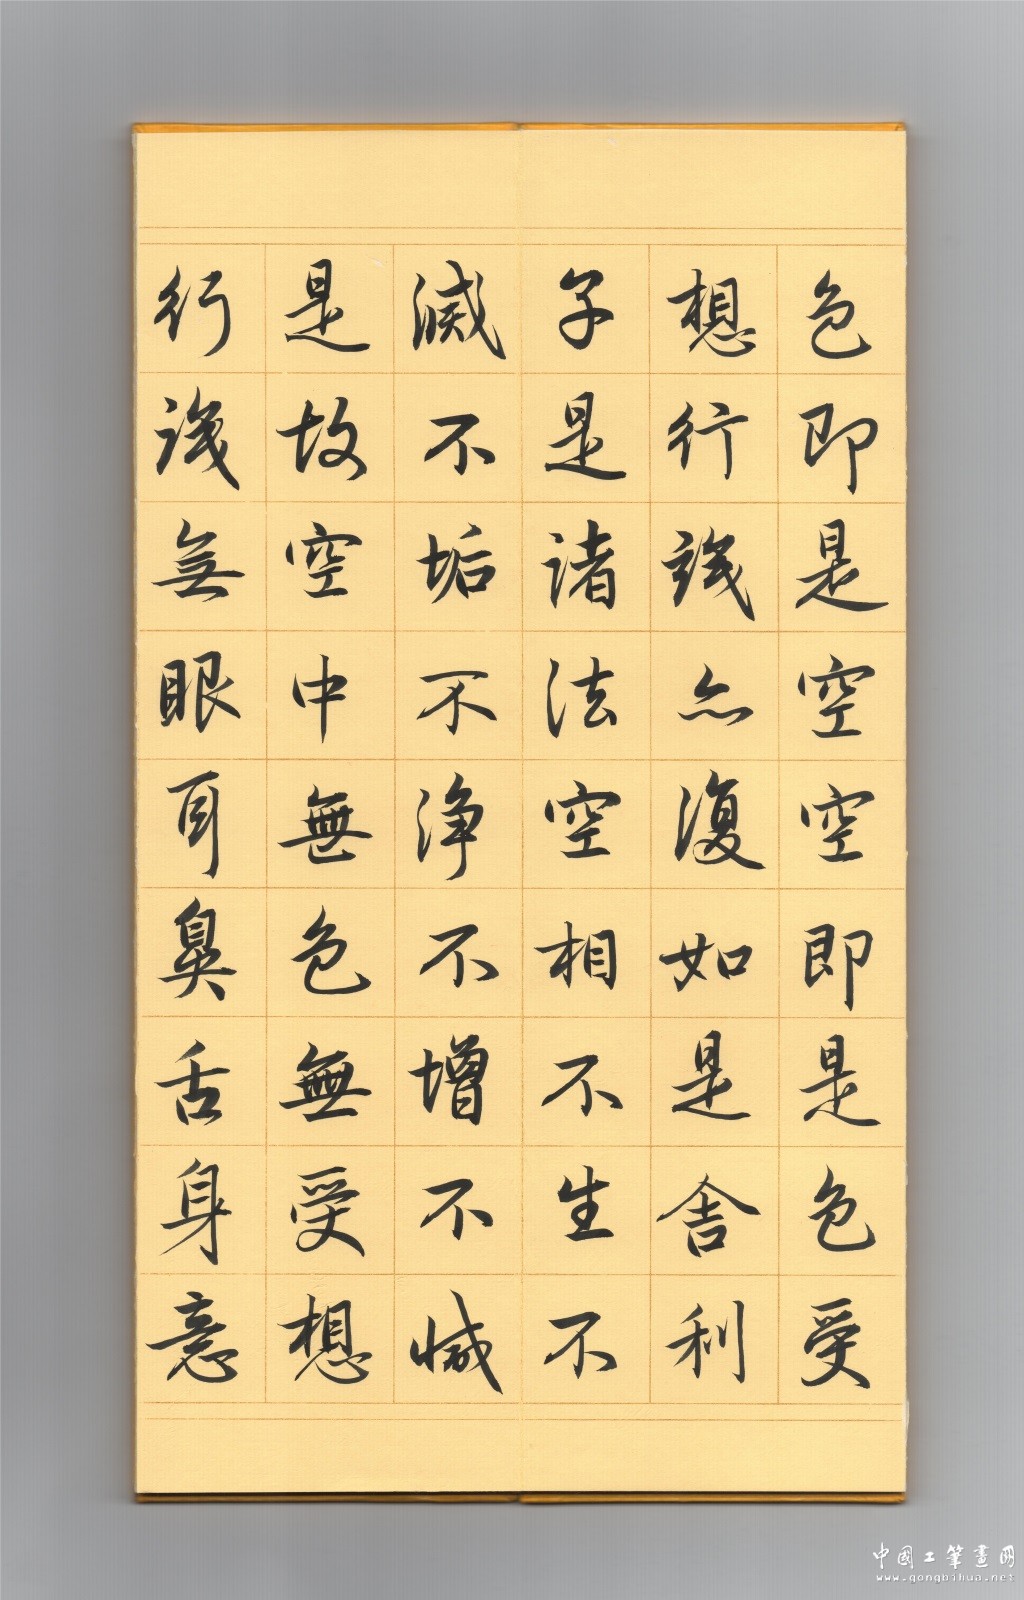 色即是空空即是色受
想行識亦復如是舍利
子是諸法空相不生不
滅不垢不淨不增不減
是故空中無色無受想
行識無眼耳鼻舌身意
中國工筆畫网
www.gongbihua.net